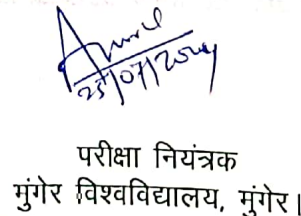 25/07/2024
परीक्षा नियंत्रक
मुंगेर विश्वविद्यालय, मुंगेर।